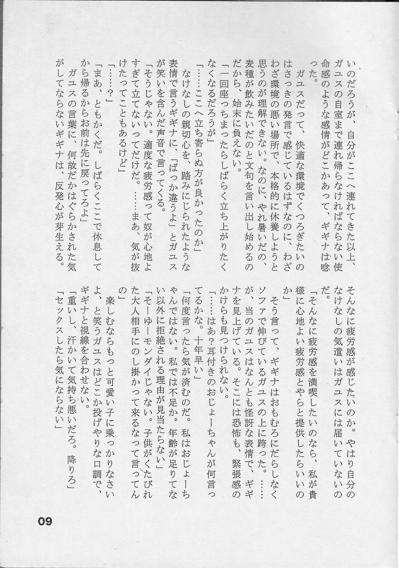 いのだろうが、自分がここへ連れてきた以上、
ガユスの自室まで連れ帰らなければならない使
命感のような感情がどこかあって、ギギナは唸
った。
　ガユスだって、快適な環境でくつろぎたいの
はさっきの発言で感じているはずなのに、わざ
わざ環境の悪い場所で、本格的に休養しようと
思うのが理解できない。なのに、やれ暑いだの、
麦種が飲みたいだのと文句を言い出し始めるの
だから、始末に負えない。
「一回座っちまったらしばらく立ち上がりたく
なくなるだろうが」
「……ここへ立ち寄らぬ方が良かったのか」
　なけなしの親切心を、踏みにじられたような
表情で言うギギナに、「ばっか違うよ」とガユス
が笑いを含んだ声音で言ってくる。
「そうじゃない。適度な疲労感って奴が心地よ
すぎて立てないってだけだ。……まあ、気が抜
けたってこともあるけど」
「……？」
「まあ、ともかくだ。しばらくここで休息して
から帰るからお前は先に戻ってろよ」
　ガユスの言葉に、何故だかはぐらかされた気
がしてならないギギナは、反発心が芽生える。
そんなに疲労感が感じたいのか。やはり自分の
なけなしの気遣いはガユスには届いていないの
だ。
「そんなに疲労感を満喫したいのなら、私が貴
様に心地よい疲労感とやらを提供したらいいの
か」
　そう言って、ギギナはおもむろにだらしなく
ソファで伸びているガユスの上に跨った。……
が、当のガユスはなんとも怪訝な表情で、ギギ
ナを見上げている。そこには恐怖も、緊張感の
かけらも見つけられない。
「……はあ？耳付きのおじょーちゃんが何言っ
てるかな。十年早い」
「何度言ったら気が済むのだ。私はおじょーち
ゃんではない。私では不足か。年齢が足りてな
い以外に拒絶される理由が見当たらない」
「そーゆーモンダイじゃない。子供がくたびれ
た大人相手にのし掛かって来るなって言ってん
の」
　楽しむならもっと可愛い子に乗っかりなさい
よ、と笑うガユスはどこか投げやりな口調で、
ギギナと視線を合わせない。
「重いし、汗かいて気持ち悪いだろ。降りろ」
「セックスしたら気にならない」
09